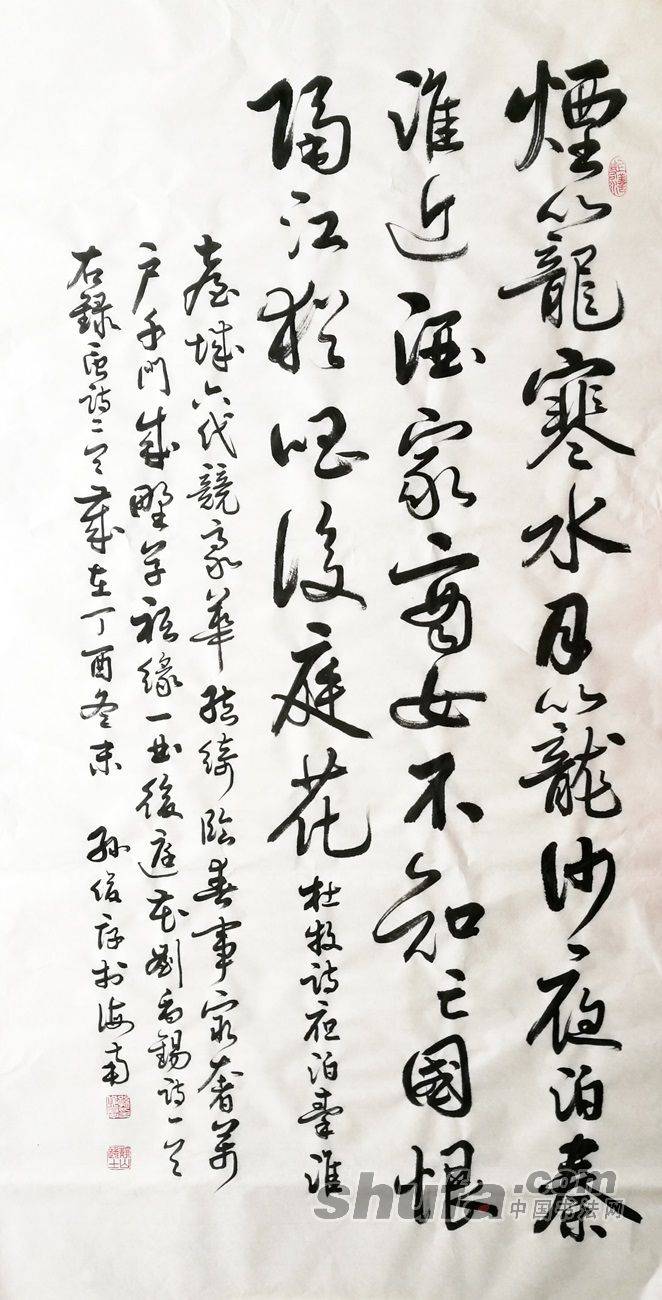 煙籠寒水月籠沙夜泊秦
淮近酒家商女不知亡國恨
隔江猶唱後庭花 杜牧詩夜泊秦淮
臺城六代競豪華結綺臨春事最奢萬
户千門成野草祇緣一曲後庭花劉禹錫詩一首
右録唐詩二首歲在丁酉冬末 孫於海南
shufa.com
中国书法网